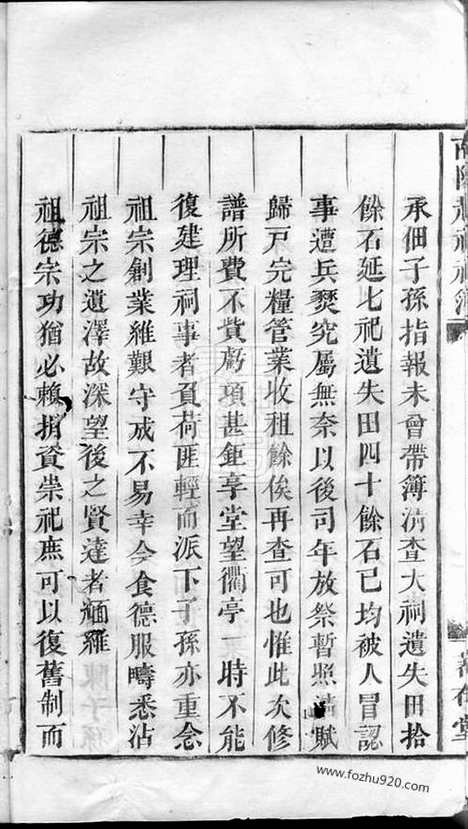 承佃子孫指報未曾帶簿清查大祠遺失田拾
餘石延七祀遺失田四十餘石已均被人冒認
事遭兵燹究屬無奈以後司年放祭暫照 賦
歸戸完糧管業收租餘俟再查可也惟此次修
譜所費不貲虧項甚鉅享堂望衢亭一時不能
復建理祠事者負荷匪輕而派下子孫亦重念
祖宗創業維艱守成不易幸今食德服疇悉沾
祖宗之遺澤故深望後之賢達者緬維
祖德宗功猶必賴捐資崇祀庶可以復舊制而
www.fozhu920.com